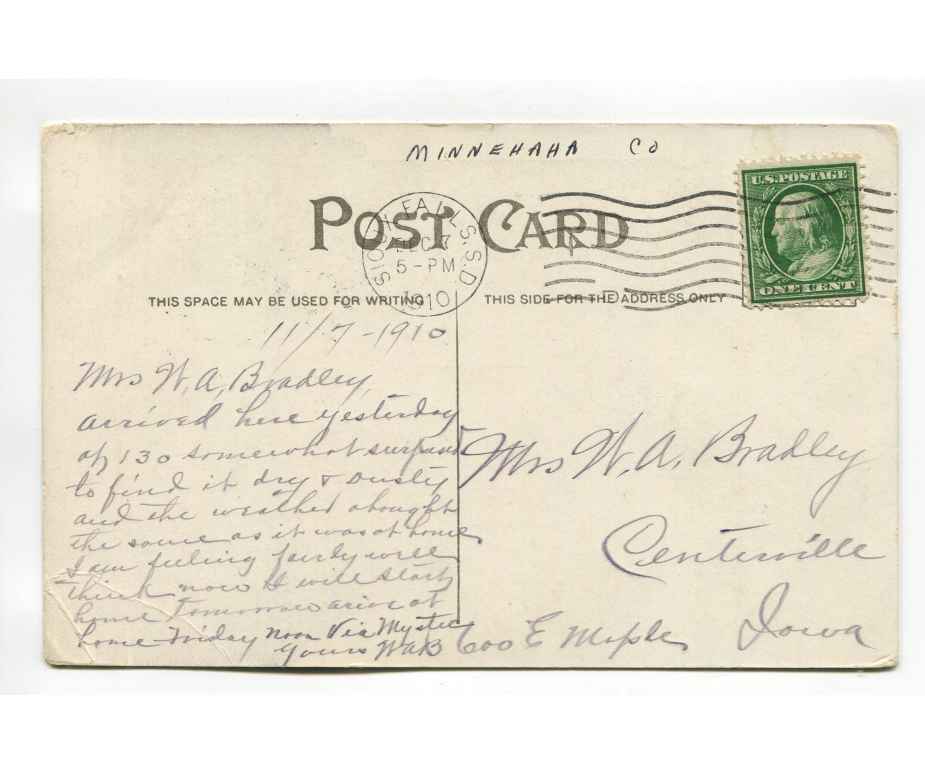 MINNEHAHA CO
POST CARD
SIOUX FALLS. S.D.
DEC 7
5-PM
1910
D
U.S. POSTAGE
ONE CENT
THIS SPACE MAY BE USED FOR WRITING
THIS SIDE FOR THE ADDRESS ONLY
11/7-1910
Mrs W. A. Bradley,
arrived here yesterday
at 130 somewhat surprised
to find it dry & dusty
and the weather about
the same as it was at home
I am feeling fairly well
think now I will start
home tomorrow arive at
home Friday noon Via Mystic
Yours WAB
Mrs W. A. Bradley
Centerville
Iowa
600 E Maple